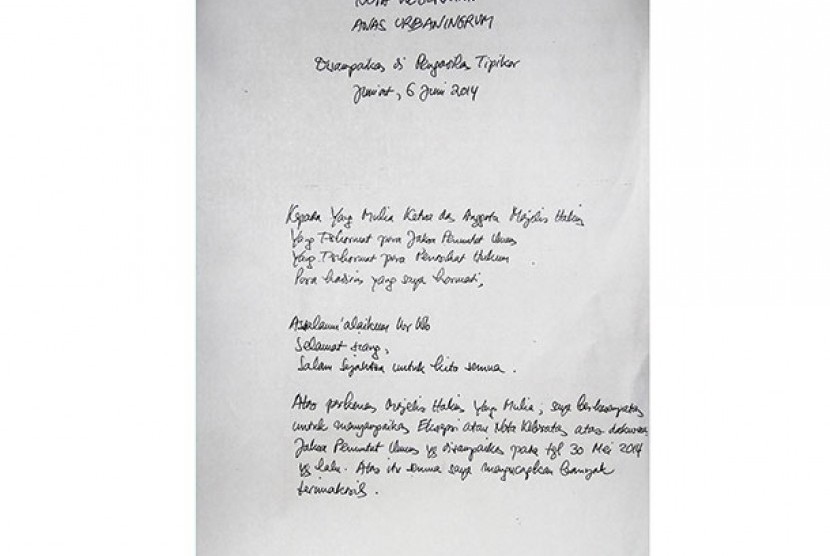 NOTA KEBERATAN
ANAS URBANINGRUM
Disampaikan di Pengadilan Tipikor
Jum'at, 6 Juni 2014
Kepada Yang Mulia Ketua dan Anggota Majelis Hakim
Yang Terhormat para Jaksa Penuntut Umum
Yang Terhormat para Penasihat Hukum
Para hadirin yang saya hormati,
Assalamu'alaikum Wr Wb
Selamat siang,
Salam Sejahtera untuk kita semua.
Atas perkenan Majelis Hakim Yang Mulia, saya berkesempatan
untuk menyampaikan Eksepsi atau Nota Keberatan atas dakwaan
Jaksa Penuntut Umum yg disampaikan pada tgl 30 Mei 2014
yg lalu. Atas itu semua saya mengucapkan banyak
terimakasih.